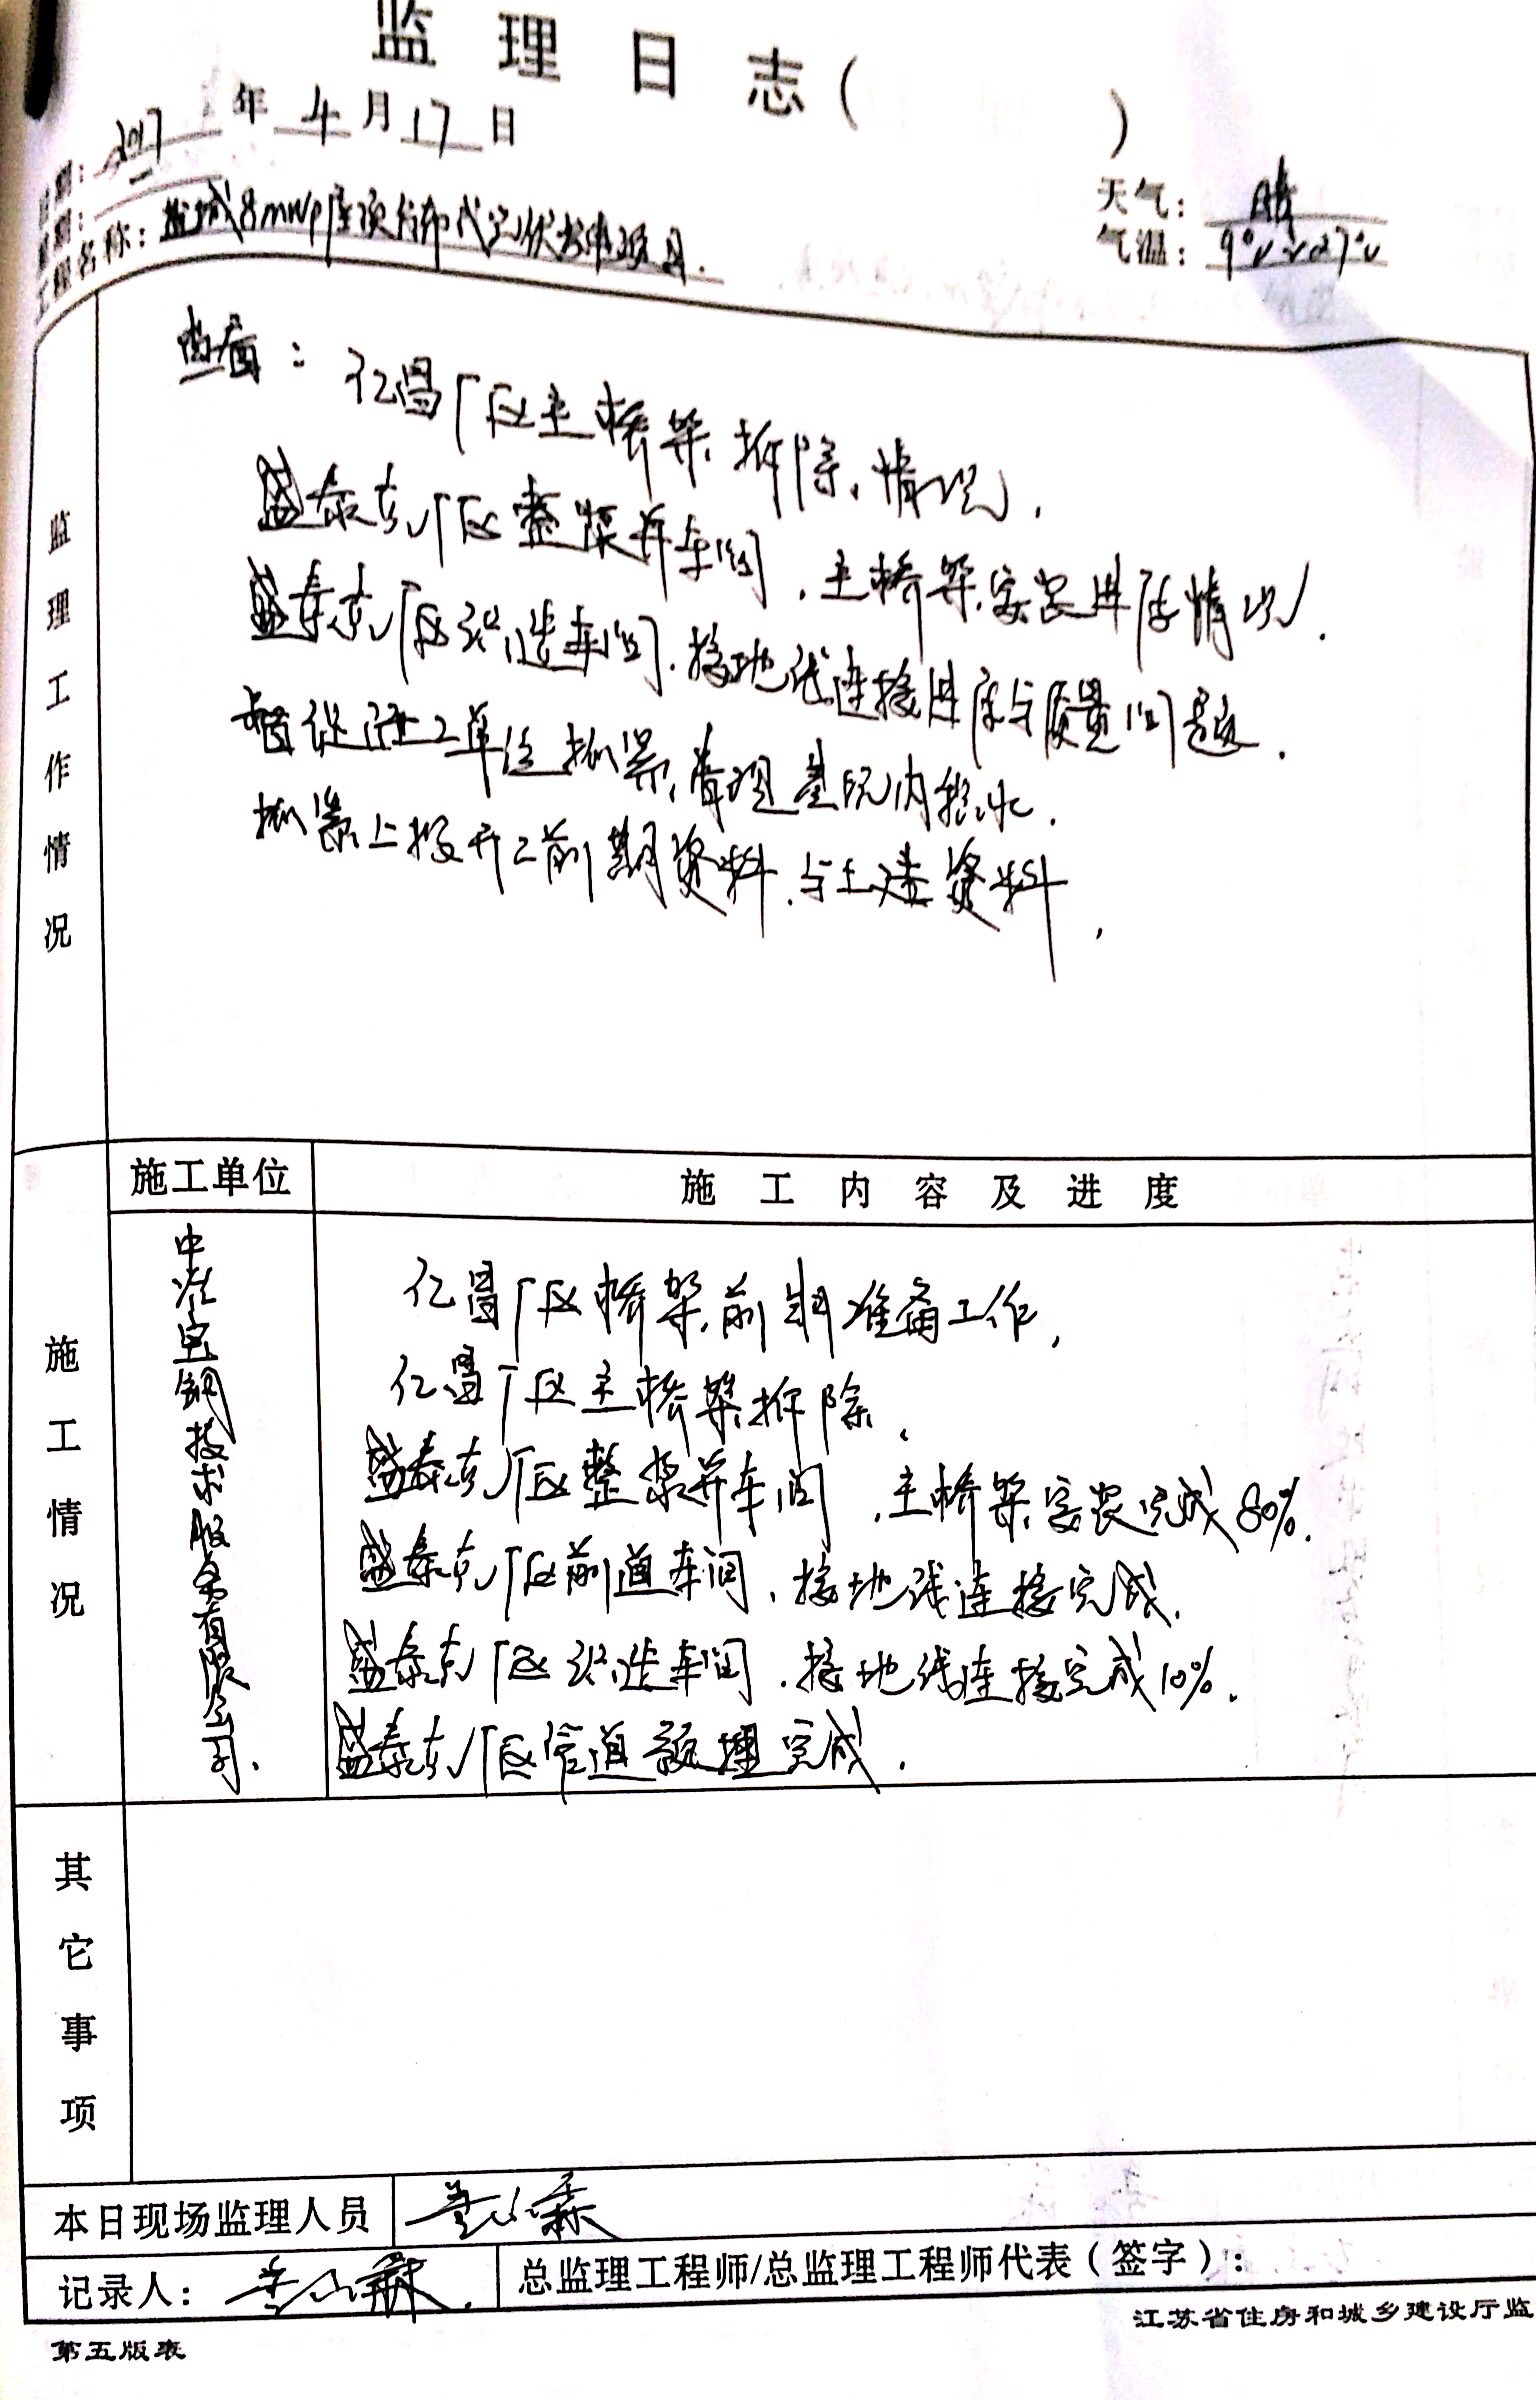 监理日志(                    )
日期: 2017 年 4 月 17 日
星期: 一
天气: 晴
工程名称: 盐城8MWp屋顶分布式光伏发电项目.
气温: 9℃~27℃
监理工作情况
查看: 亿昌厂区主桥架拆除情况,
盛泰东厂区整浆并车间,主桥架安装进度情况.
盛泰东厂区织造车间.接地线连接进度与质量问题.
督促施工单位抓紧清理基坑内积水.
抓紧上报开工前期资料.与土建资料.
施工单位
施工内容及进度
施工情况
中准宝钢技术服务有限公司.
亿昌厂区桥架前期准备工作,
亿昌厂区主桥架拆除.
盛泰东厂区整浆并车间,主桥架安装完成80%.
盛泰东厂区前道车间,接地线连接完成.
盛泰东厂区织造车间.接地线连接完成10%.
盛泰东厂区管道预埋完成.
其它事项
本日现场监理人员
记录人:
总监理工程师/总监理工程师代表(签字):
江苏省住房和城乡建设厅监
第五版表